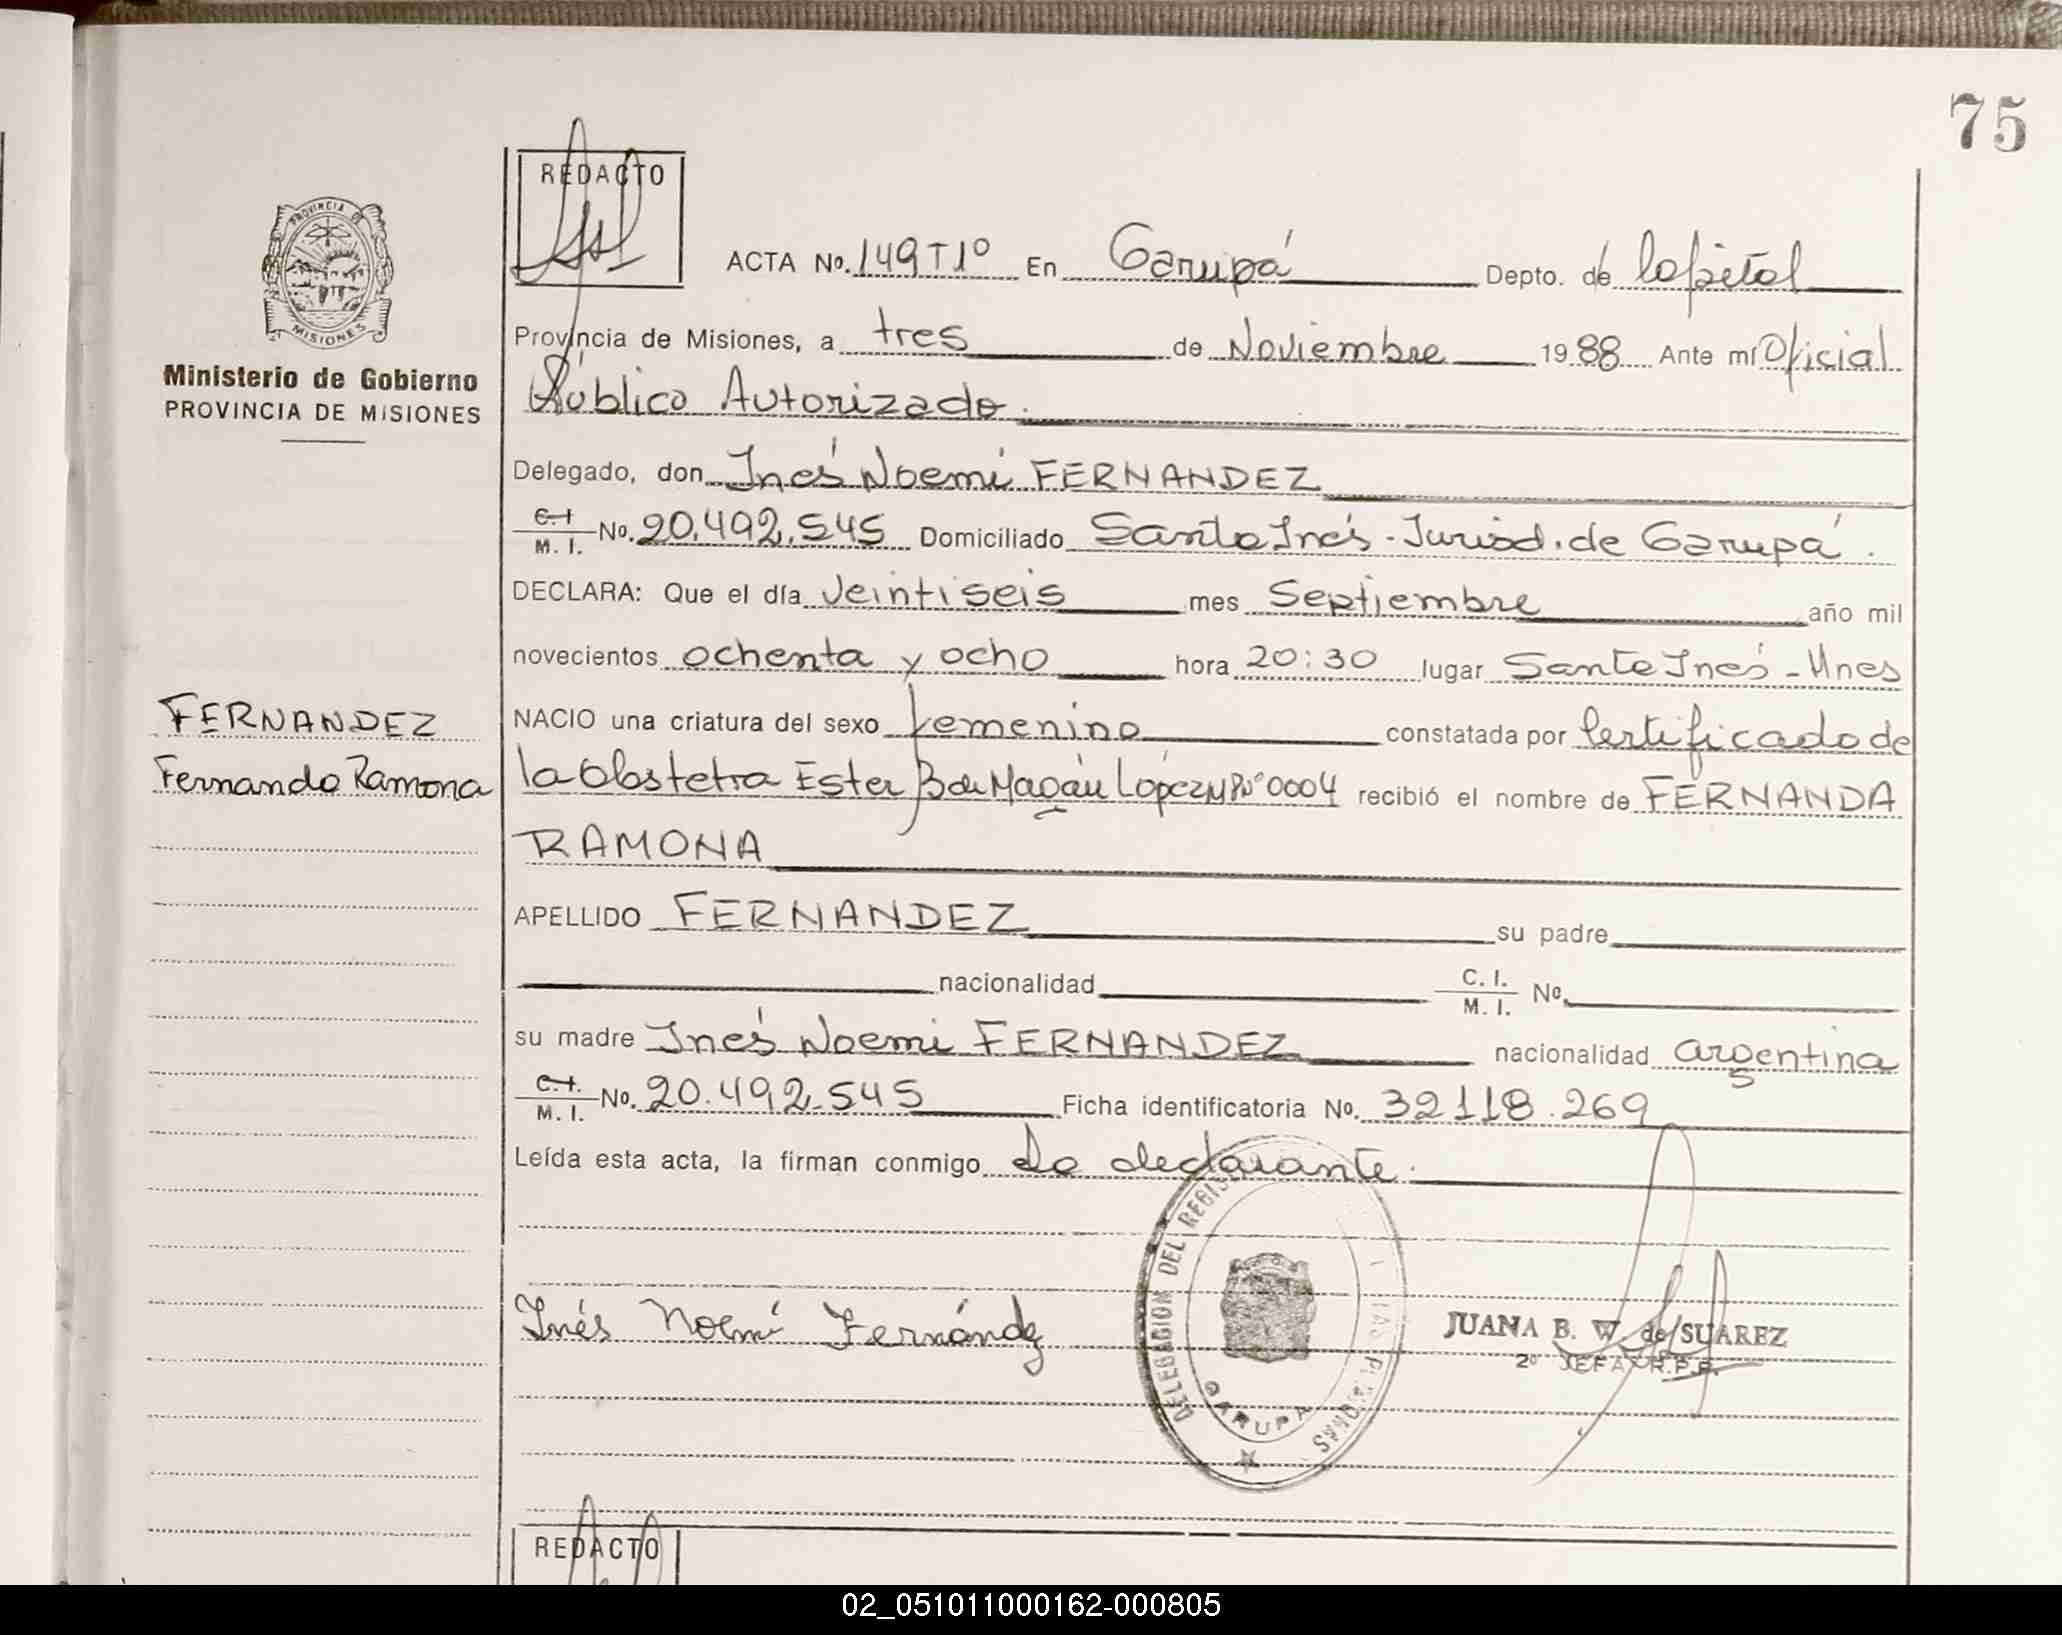 75
REDACTO
PROVINCIA DE
MISIONES
Ministerio de Gobierno
PROVINCIA DE MISIONES
ACTA No. 149 T 1º En Garupá Depto. de Capital
Provincia de Misiones, a tres de Noviembre 1988 Ante mí Oficial
Público Autorizado.
Delegado, don Inés Noemi FERNANDEZ
C.I. M. I. No. 20.492.545 Domiciliado Santa Inés - Jurisd. de Garupá.
DECLARA: Que el día veintiseis mes Septiembre año mil
novecientos ochenta y ocho hora 20:30 lugar Santa Inés - Mnes
FERNANDEZ
Fernanda Ramona
NACIO una criatura del sexo femenino constatada por Certificado de
la Obstetra Ester B de Magán López MP Nº 0004 recibió el nombre de FERNANDA
RAMONA
APELLIDO FERNANDEZ su padre
nacionalidad C. I. M. I. No.
su madre Inés Noemi FERNANDEZ nacionalidad argentina
C.I. M. I. No. 20.492.545 Ficha identificatoria No. 32118.269
Leída esta acta, la firman conmigo La declarante.
DELEGACION DEL
GARUPA
Inés Noemí Fernández
JUANA B. W. de SUAREZ
2º JEFA R.P.P.
REDACTO
02_051011000162-000805